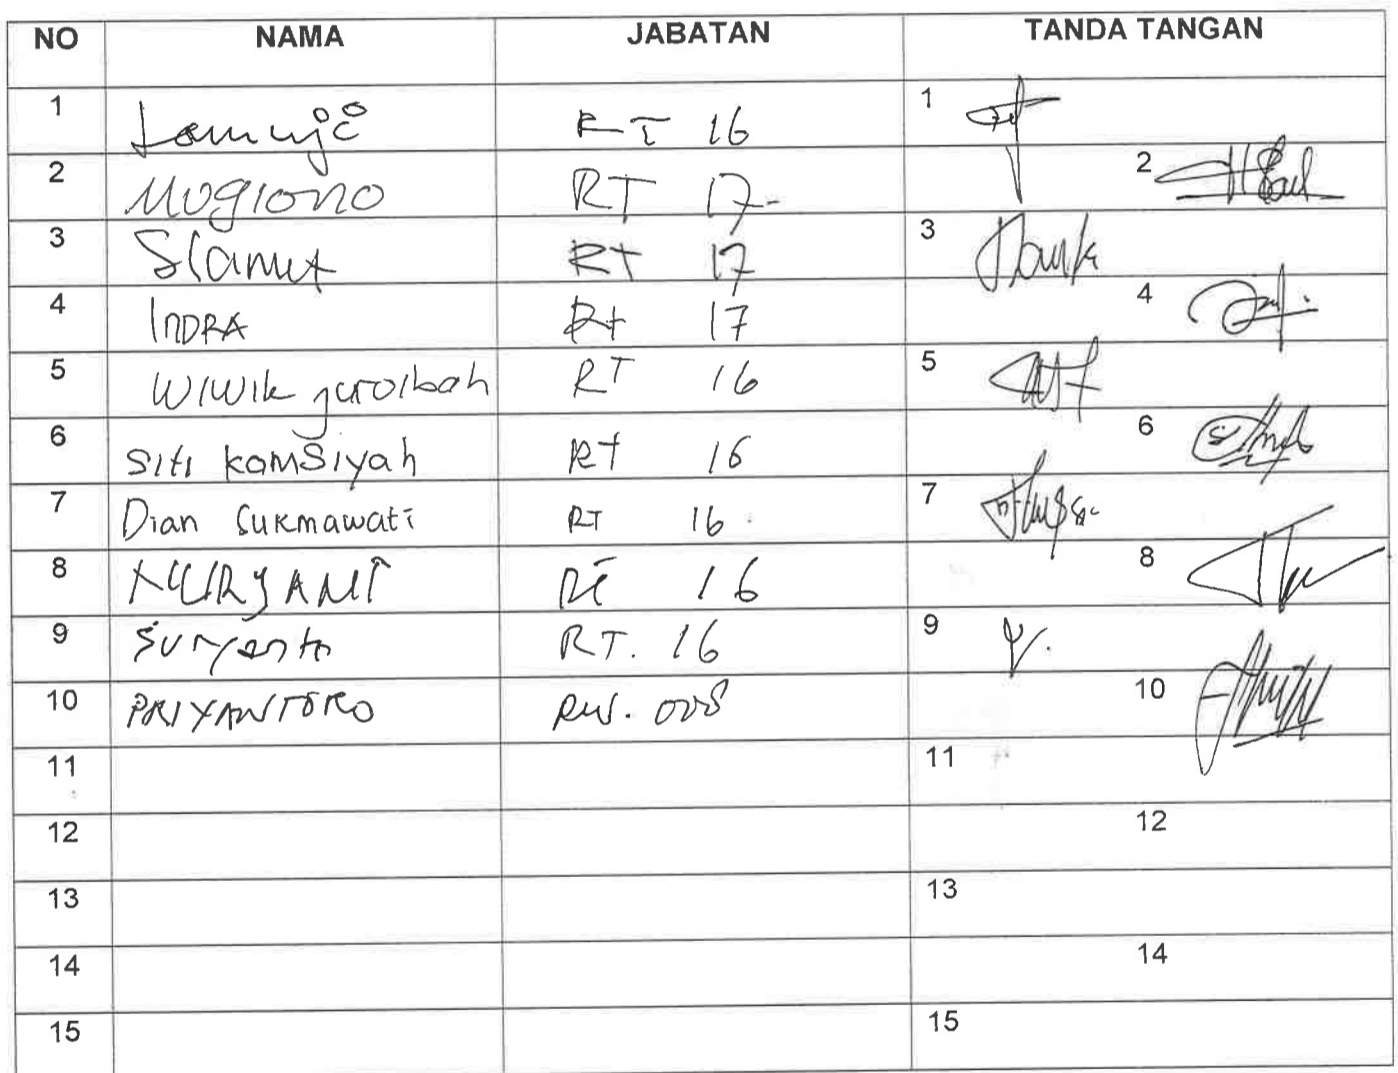 NO NAMA JABATAN TANDA TANGAN
1 RT 16 1
2 Mugiono RT 17- 2
3 Slamet RT 17 3
4 INDRA Rt 17 4
5 Wiwik juroibah RT 16 5
6 Siti komsiyah Rt 16 6
7 Dian Sukmawati RT 16 7
8 NURYANI Rt 16 8
9 Suryanto RT. 16 9
10 PRIYANTORO RW. 008 10
11 11
12 12
13 13
14 14
15 15